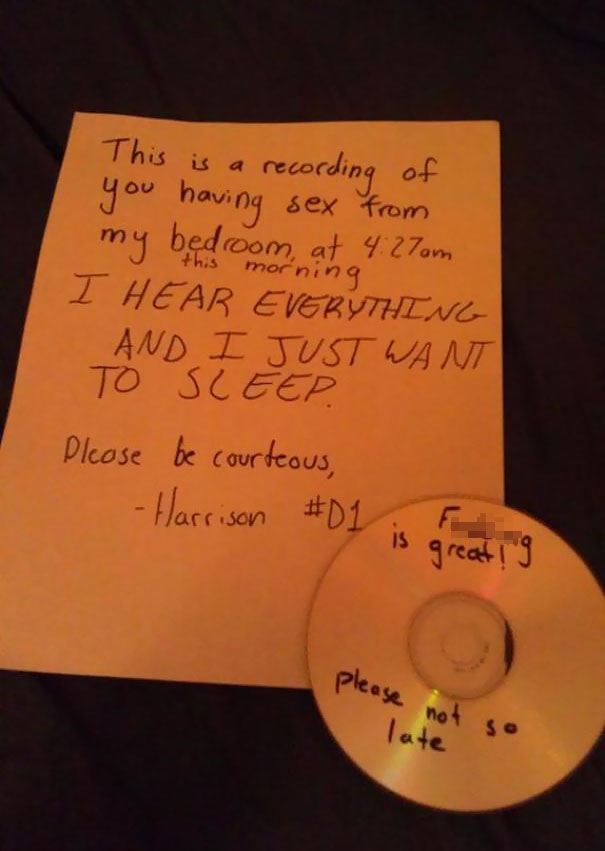 This is a recording of
you having sex from
my bedroom, at 4:27am
this morning
I HEAR EVERYTHING
AND I JUST WANT
TO SLEEP.
Please be courteous,
-Harrison #D1
F g
is great!
please not so
late